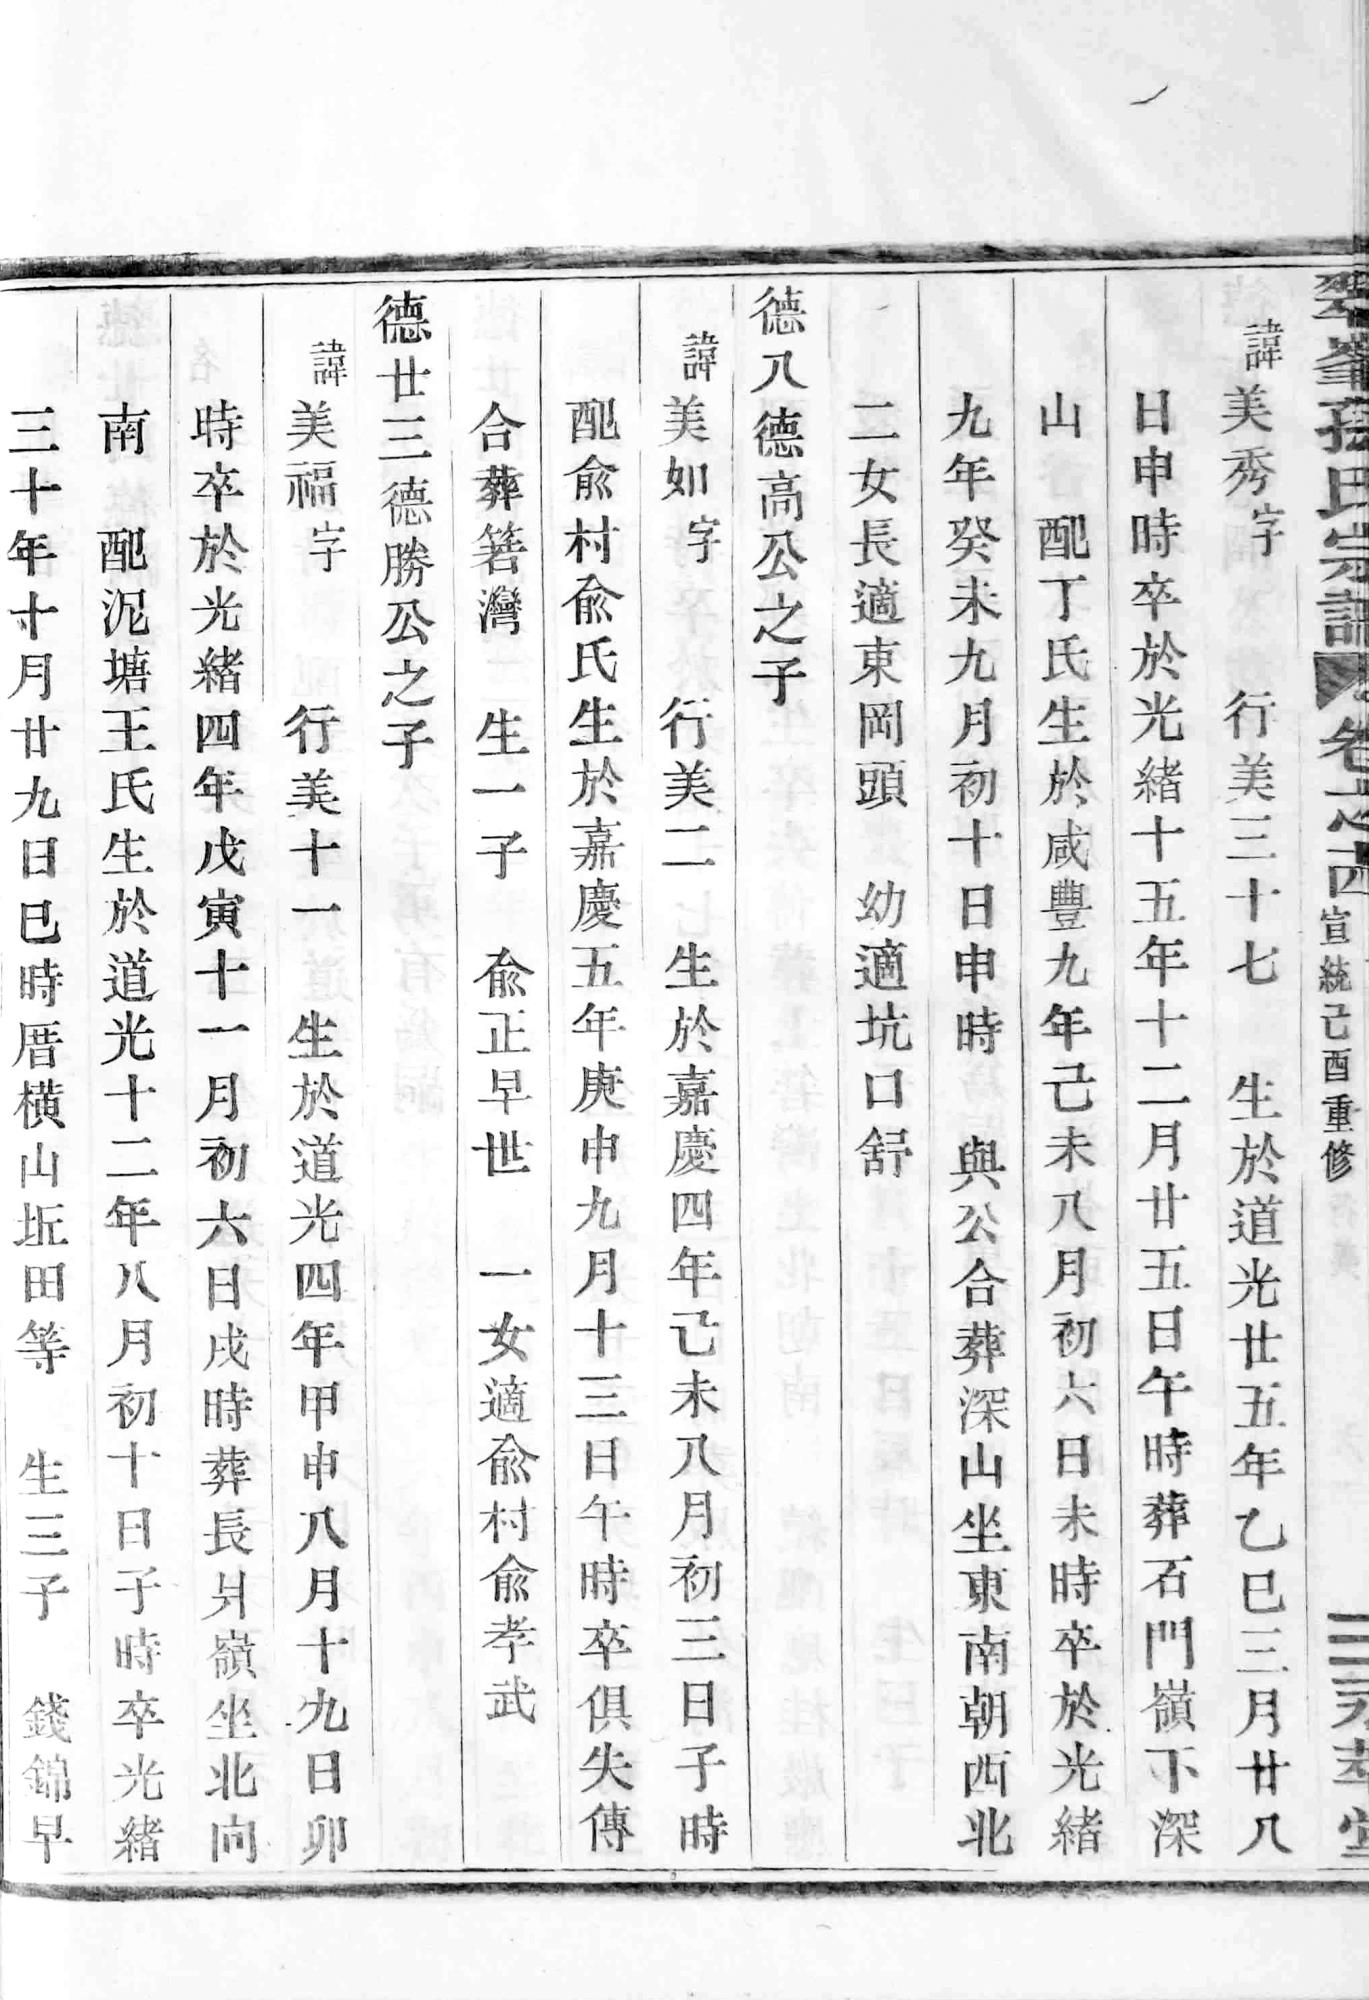 孫氏宗譜 卷之四 宣統己酉重修
諱美秀字 行美三十七 生於道光廿五年乙巳三月廿八
日申時卒於光緒十五年十二月廿五日午時葬石門嶺下深
山 配丁氏生於咸豐九年己未八月初六日未時卒於光緒
九年癸未九月初十日申時 與公合葬深山坐東南朝西北
二女長適東岡頭 幼適坑口舒
德八德高公之子
諱美如字 行美二 生於嘉慶四年己未八月初三日子時
配俞村俞氏生於嘉慶五年庚申九月十三日午時卒俱失傳
合葬箬灣 生一子 俞正早世 一女適俞村俞孝武
德廿三德勝公之子
諱美福字 行美十一 生於道光四年甲申八月十九日卯
時卒於光緒四年戊寅十一月初六日戌時葬長爿嶺坐北向
南 配泥塘王氏生於道光十二年八月初十日子時卒光緒
三十年十月廿九日巳時厝橫山坵田等 生三子 錢錦早